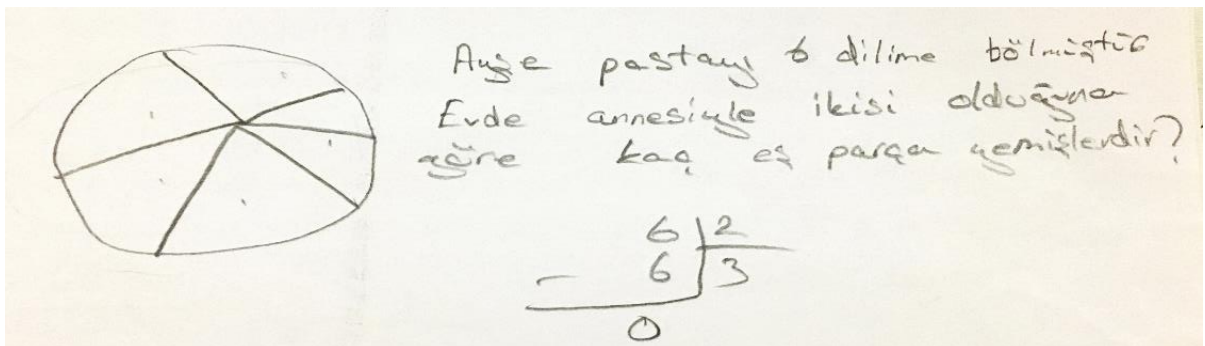 Ayşe pastayı 6 dilime bölmüştür
Evde annesiyle ikisi olduğuna
göre kaç eş parça yemişlerdir?
6 2
- 6 3
0